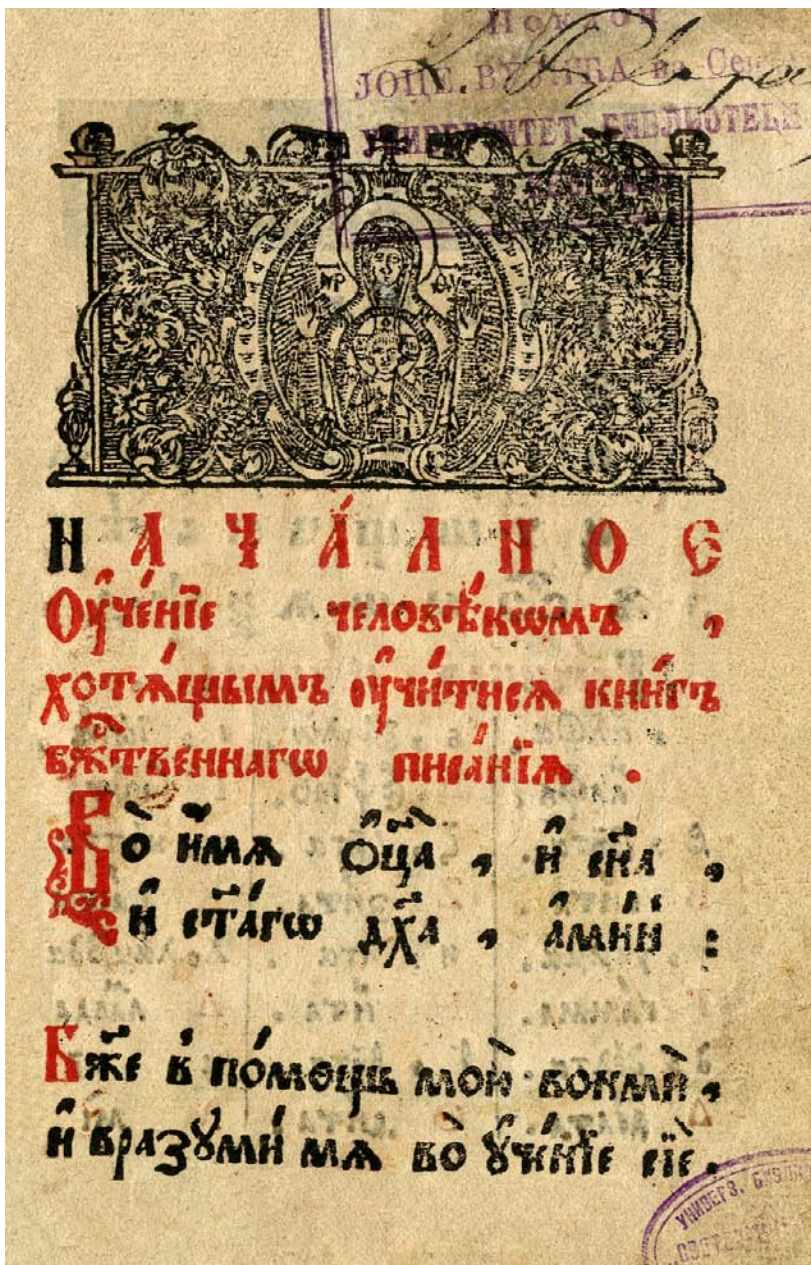 Поклон
ЈОЦЕ ВУЈИЋА из Сенте
УНИВЕРЗИТЕТ. БИБЛИОТЕЦИ
МР ѲУ
НАЧА́ЛНОЕ
Оу҆че́нїе человѣ́кѡмъ ,
хотѧ́щымъ оу҆чи́тисѧ кни́гъ
бж҃твеннагѡ писа́нїѧ .
Во̀ и҆́мѧ Ѻ҆ц҃а̀ , и҆ сн҃а ,
и҆ ст҃а́гѡ дх҃а , а҆ми́нь :
Бж҃е в̾ по́мощь мою̀ вонмѝ ,
и҆ вразꙋми́ мѧ во̀ ᲂу҆че́нїе сїѐ .
УНИВЕРЗ. БИБЛИ